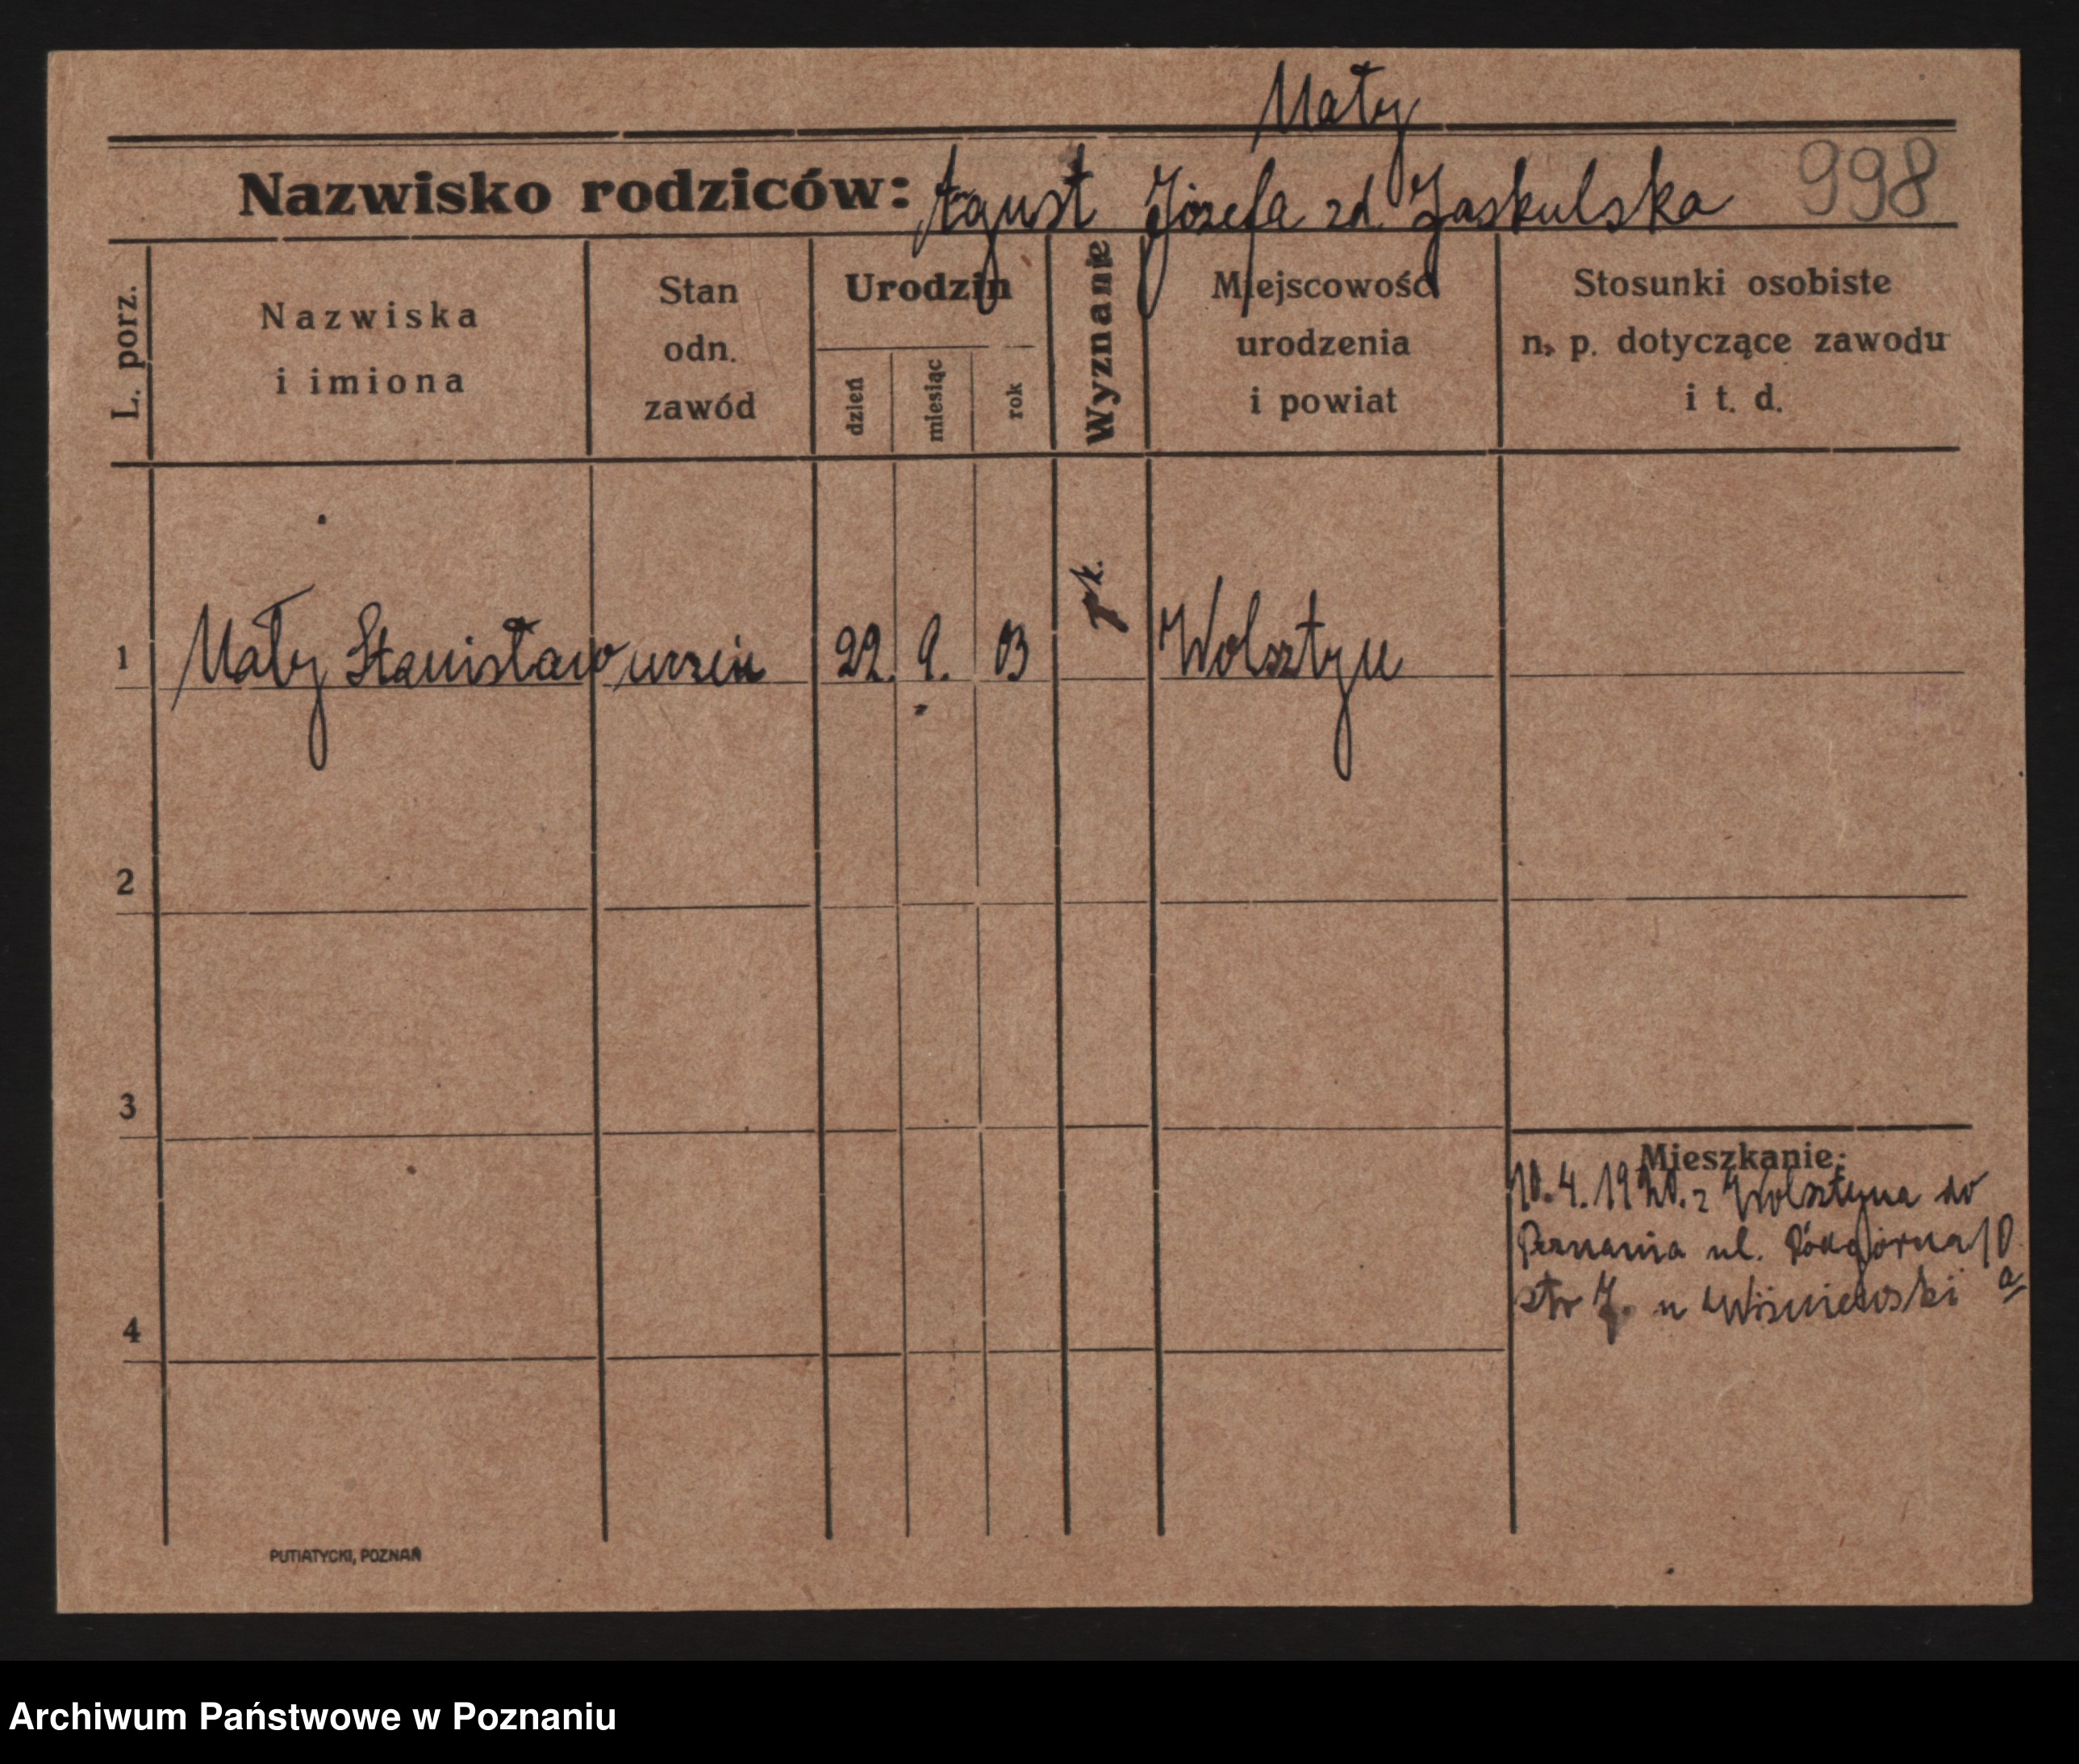 Mały
Nazwisko rodziców: Agust Józefa zd. Jaskulska 998
L. porz.
Nazwiska
i imiona
Stan
odn.
zawód
Urodzin
dzień
miesiąc
rok
Wyznanie
Miejscowość
urodzenia
i powiat
Stosunki osobiste
n. p. dotyczące zawodu
i t. d.
1 Mały Stanisław uczeń 22. 9. 03 rk. Wolsztyn
2
3
4
Mieszkanie:
10.4.1920. z Wolsztyna do
Poznania ul. Podgórna 10
a
u Wiśniewski
PUTIATYCKI, POZNAŃ
Archiwum Państwowe w Poznaniu